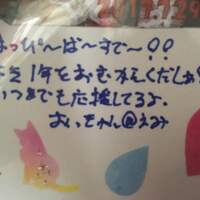 はっぴ〜ば〜すで〜!!
1年をおむかえくだしあ
いつまでも応援してるよ。
おいちゃん@えみ